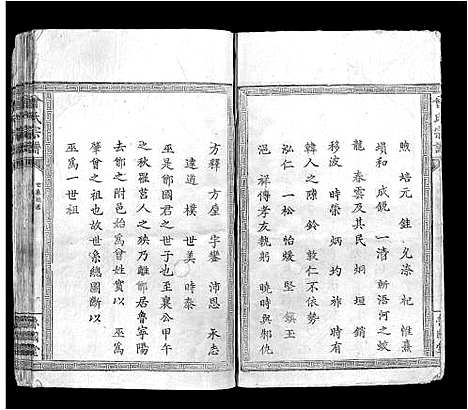 曾氏宗譜
煦 培元 銈 允 滌 杞 惟熹
塤和 咸鏡 一清 新語河之蛟
龍 春雲及其民 炯垣銷
移波 時榮 炳均祚時有
韓人之陳 鈴 敦仁不依勢
泓仁 一松 怡煖 堅 鎮玉
浥 祥傳孝友執躬 曉時與邦仇
方釋 方塵 宇鑾 沛恩 永志
達道 樸 世美 時泰
巫是鄫國君之世子也至襄公甲午
之秋羅莒人之殃乃離鄫居魯寧陽
去鄫之附邑始為曾姓實以 巫為
肇曾之祖也故世系總圖斷以
巫為一世祖
曾氏宗譜